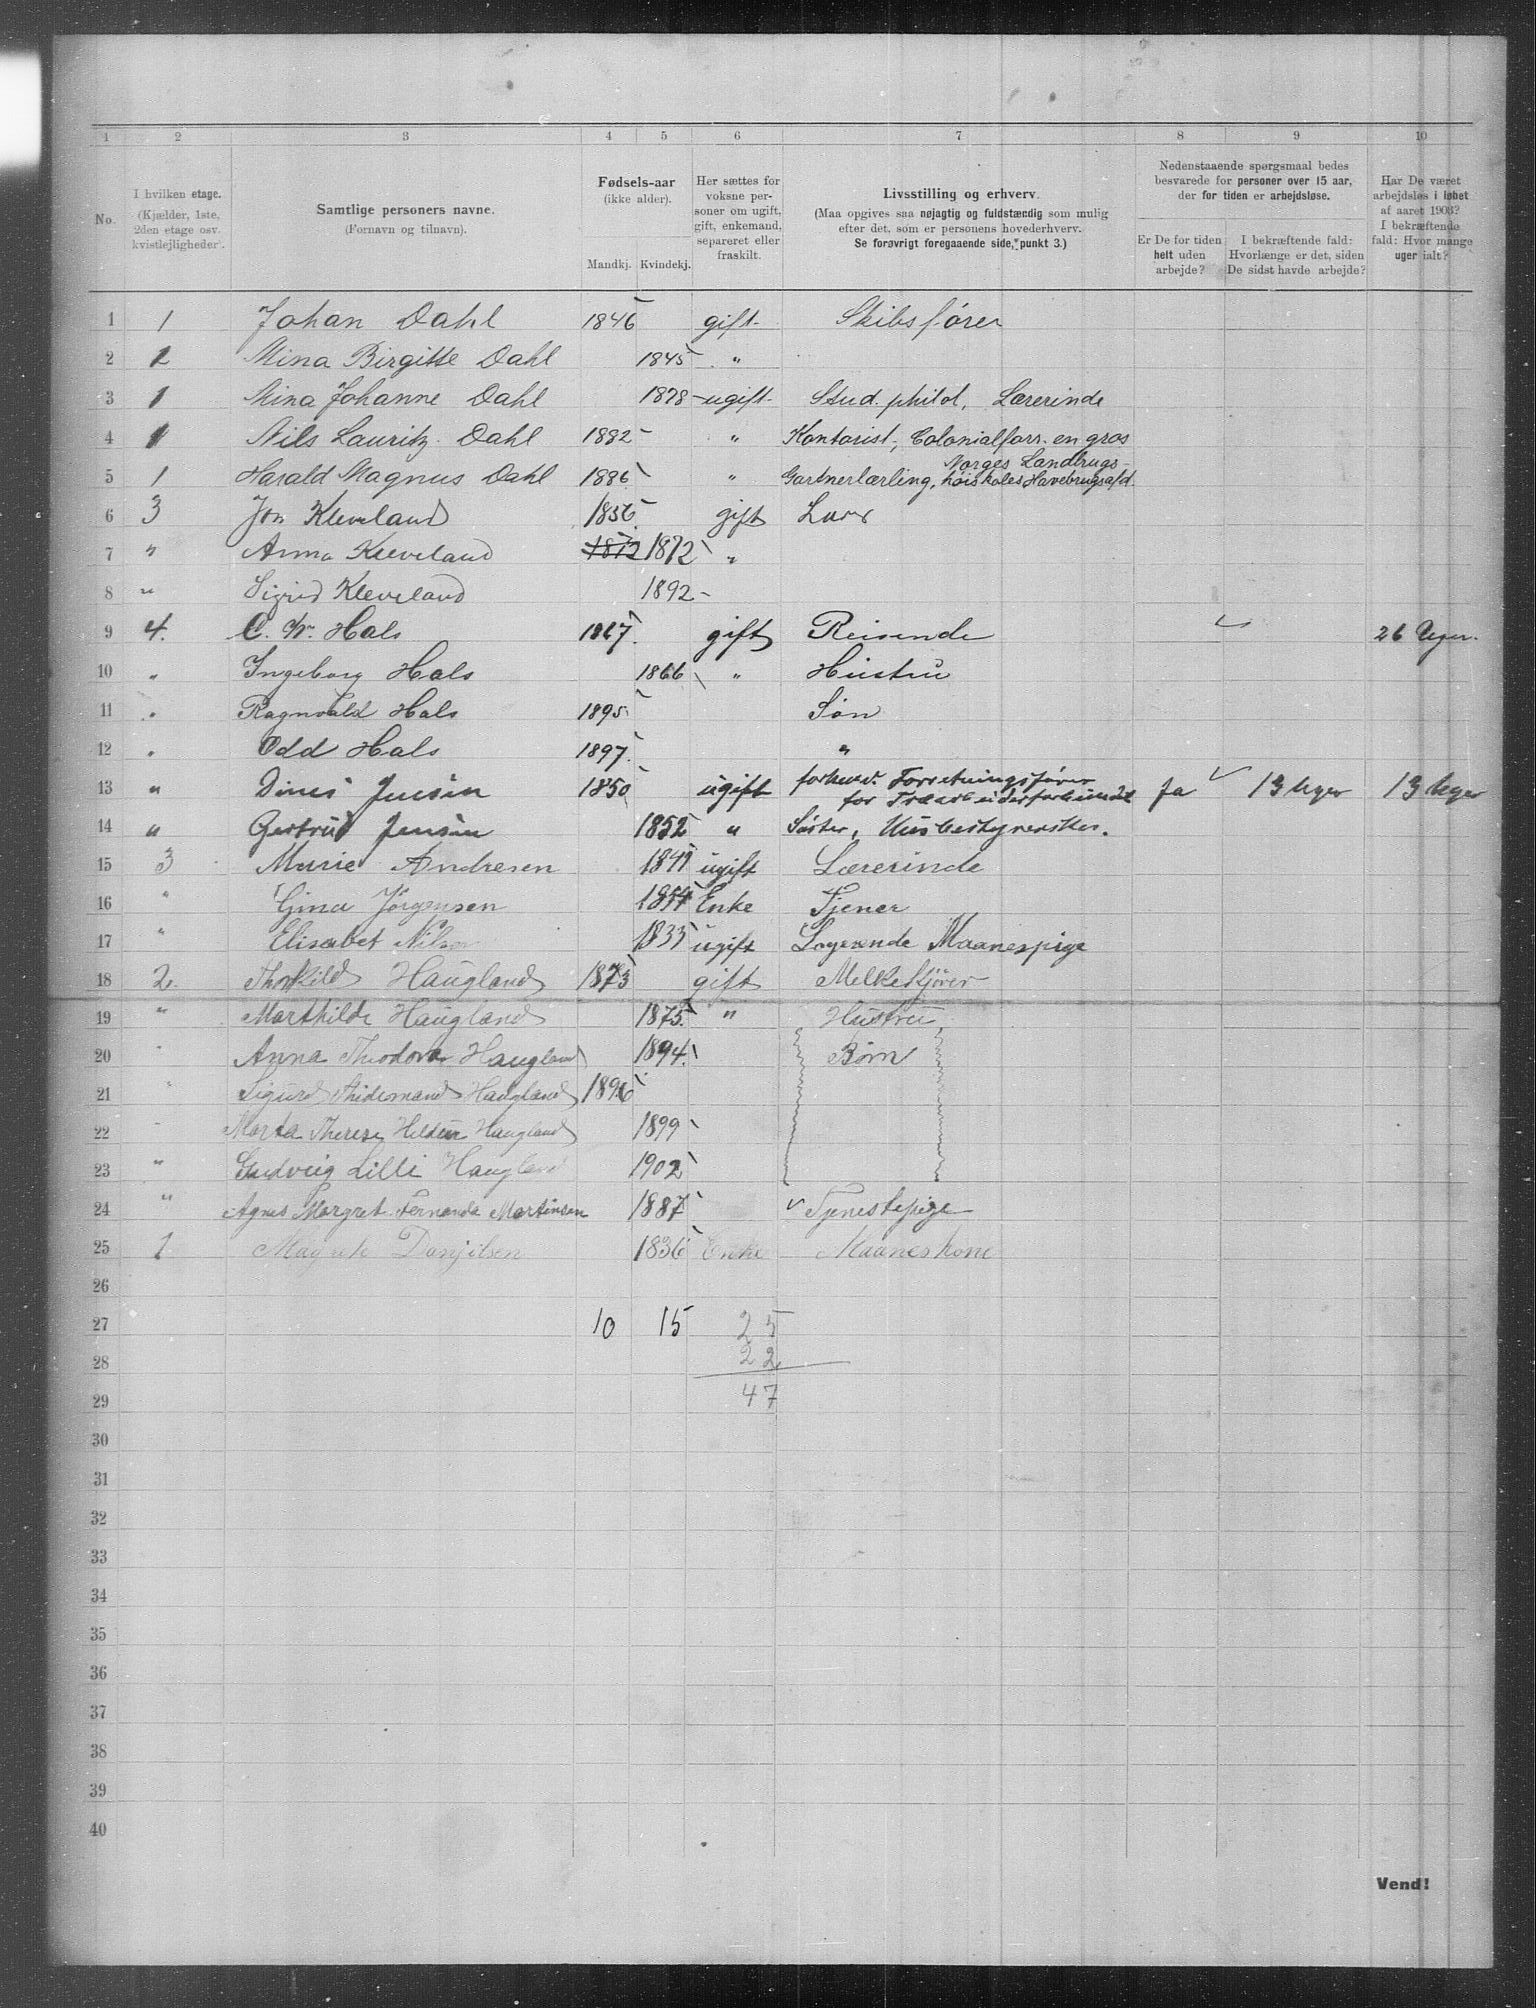 1 2 3 4 5 6 7 8 9 10
No.
I hvilken etage.
(Kjælder, 1ste,
2den etage osv.
kvistlejligheder).
Samtlige personers navne.
(Fornavn og tilnavn).
Fødsels-aar
(ikke alder).
Mandkj. Kvindekj.
Her sættes for
voksne per-
soner om ugift,
gift, enkemand,
separeret eller
fraskilt.
Livsstilling og erhverv.
(Maa opgives saa nøjagtig og fuldstændig som mulig
efter det, som er personens hovederhverv.
Se forøvrigt foregaaende side, punkt 3.)
Nedenstaaende spørgsmaal bedes
besvarede for personer over 15 aar,
der for tiden er arbejdsløse.
Er De for tiden
helt uden
arbejde?
I bekræftende fald:
Hvorlænge er det, siden
De sidst havde arbejde?
Har De været
arbejdsløs i løbet
af aaret 1903?
I bekræftende
fald: Hvor mange
uger ialt?
1 1 Johan Dahl 1846 gift Skibsfører
2 1 Mina Birgitte Dahl 1845 "
3 1 Mina Johanne Dahl 1878 ugift Stud. philol, Lærerinde
4 1 Nils Lauritz Dahl 1882 " Kontorist, Colonialforr. en gros
5 1 Harald Magnus Dahl 1886 " Gartnerlærling, Norges Landbrugs-
høiskoles Havebrugsafd.
6 3 Jon Kleveland 1856 gift
7 " Anna Kleveland 1872 1872 "
8 " Sigrid Kleveland 1892
9 4. C. Hals 1867 gift Reisende 26 Uger.
10 " Ingeborg Hals 1866 " Hustru
11 " Ragnvald Hals 1895 Søn
12 " Odd Hals 1897 "
13 " Dines Jensen 1850 ugift forhenv. Forretningsfører
for Træarbeiderforbundet Ja 13 Uger 13 Uger
14 " Gertrud Jensen 1852 " Søster, Husbestyrerske.
15 3 Marie Andresen ugift Lærerinde
16 " Gina Jørgensen 1854 Enke Tjener
17 " Elisabet 1833 ugift Logerende Maanespige
18 2. Thorkild Haugland 1873 gift Melkekjører
19 " Marthilde Haugland 1875 " Hustru
20 " Anna Theodora Haugland 1894 Børn
21 " Sigurd Haugland 1896
22 " Marta Therese Haugland 1899
23 " Lilli Haugland 1902
24 " Agnes Margret Fernanda Martinsen 1887 Tjenestepige
25 1 1836 Enke Maaneskone
26
27 10 15 25
28 22
29 47
30
31
32
33
34
35
36
37
38
39
40
Vend!